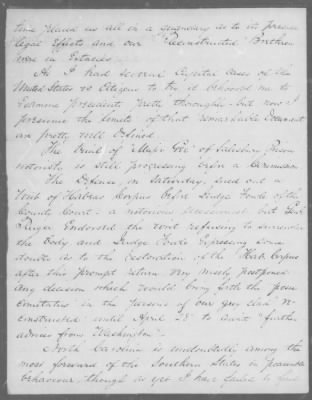 time placed us all in a quandary as to its precise
legal effects and our "Reconstructed" Brethren
were in Extacies.
As I had several Capital cases of the
United States vs Citizens to try it behooved me to
Examine precedents pretty thoroughly but now I
presume the limits of that remarkable Document
are pretty well Defined.
The trial of "Major Gee" of Salisbury Prison
notoriety is still progressing before a Commission
The Defence on Saturday, sued out a
Writ of Habeas Corpus before Judge Fowle of the
County Court - a notorious secessionist but Genl
Ruger Endorsed the writ refusing to surrender
the Body and Judge Fowle expressing some
doubts as to the restoration of the Hab. Corpus
after this prompt return very wisely postponed
any decision which would bring forth the posse
comitatus in the persons of our grey clad re-
constructed until April 28 to await "further
advices from Washington".
North Carolina is undoubtedly among the
most forward of the Southern States in
behaviour though as yet I have failed to find